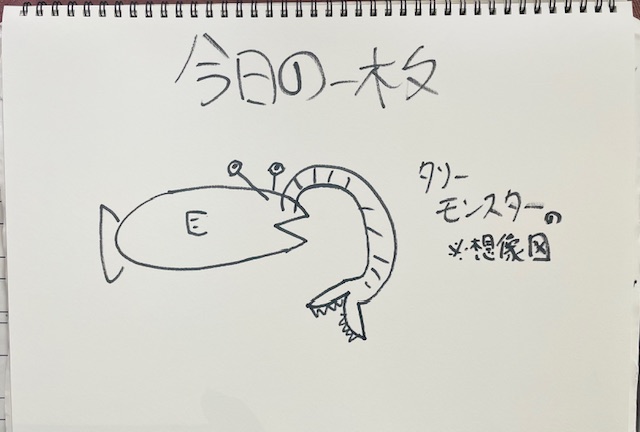 今日の一枚
E
タリー
モンスターの
※想像図